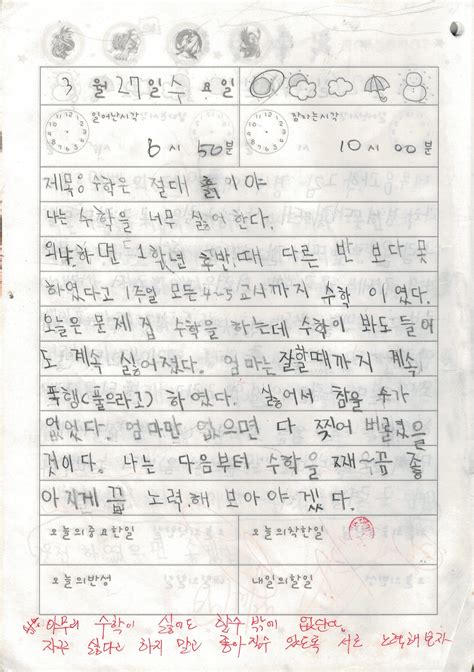 3월 27일 수요일
일어난시각 잠자는시각
6시 50분 10시 00분
제목: 수학은 절대 꽝이야
나는 수학을 너무 싫어 한다.
왜냐하면 1학년 후반때 다른 반 보다 못
하였다고 1주일 모든 4~5교시까지 수학 이였다.
오늘은 문제집 수학을 하는데 수학이 봐도 들어
도 계속 싫어졌다. 엄마는 잘할때까지 계속
폭행(풀으라고) 하였다. 싫어서 참을 수가
없었다. 엄마만 없으면 다 찢어 버렸을
것이다. 나는 다음부터 수학을 좋
아지게끔 노력해 보아야 겠다.
오늘의중요한일 오늘의착한일
오늘의반성 내일의할일
아무리 수학이 싫어도 할수 밖에 없단다.
자꾸 싫다고 하지 말고 좋아질수 있도록 서로 노력해보자